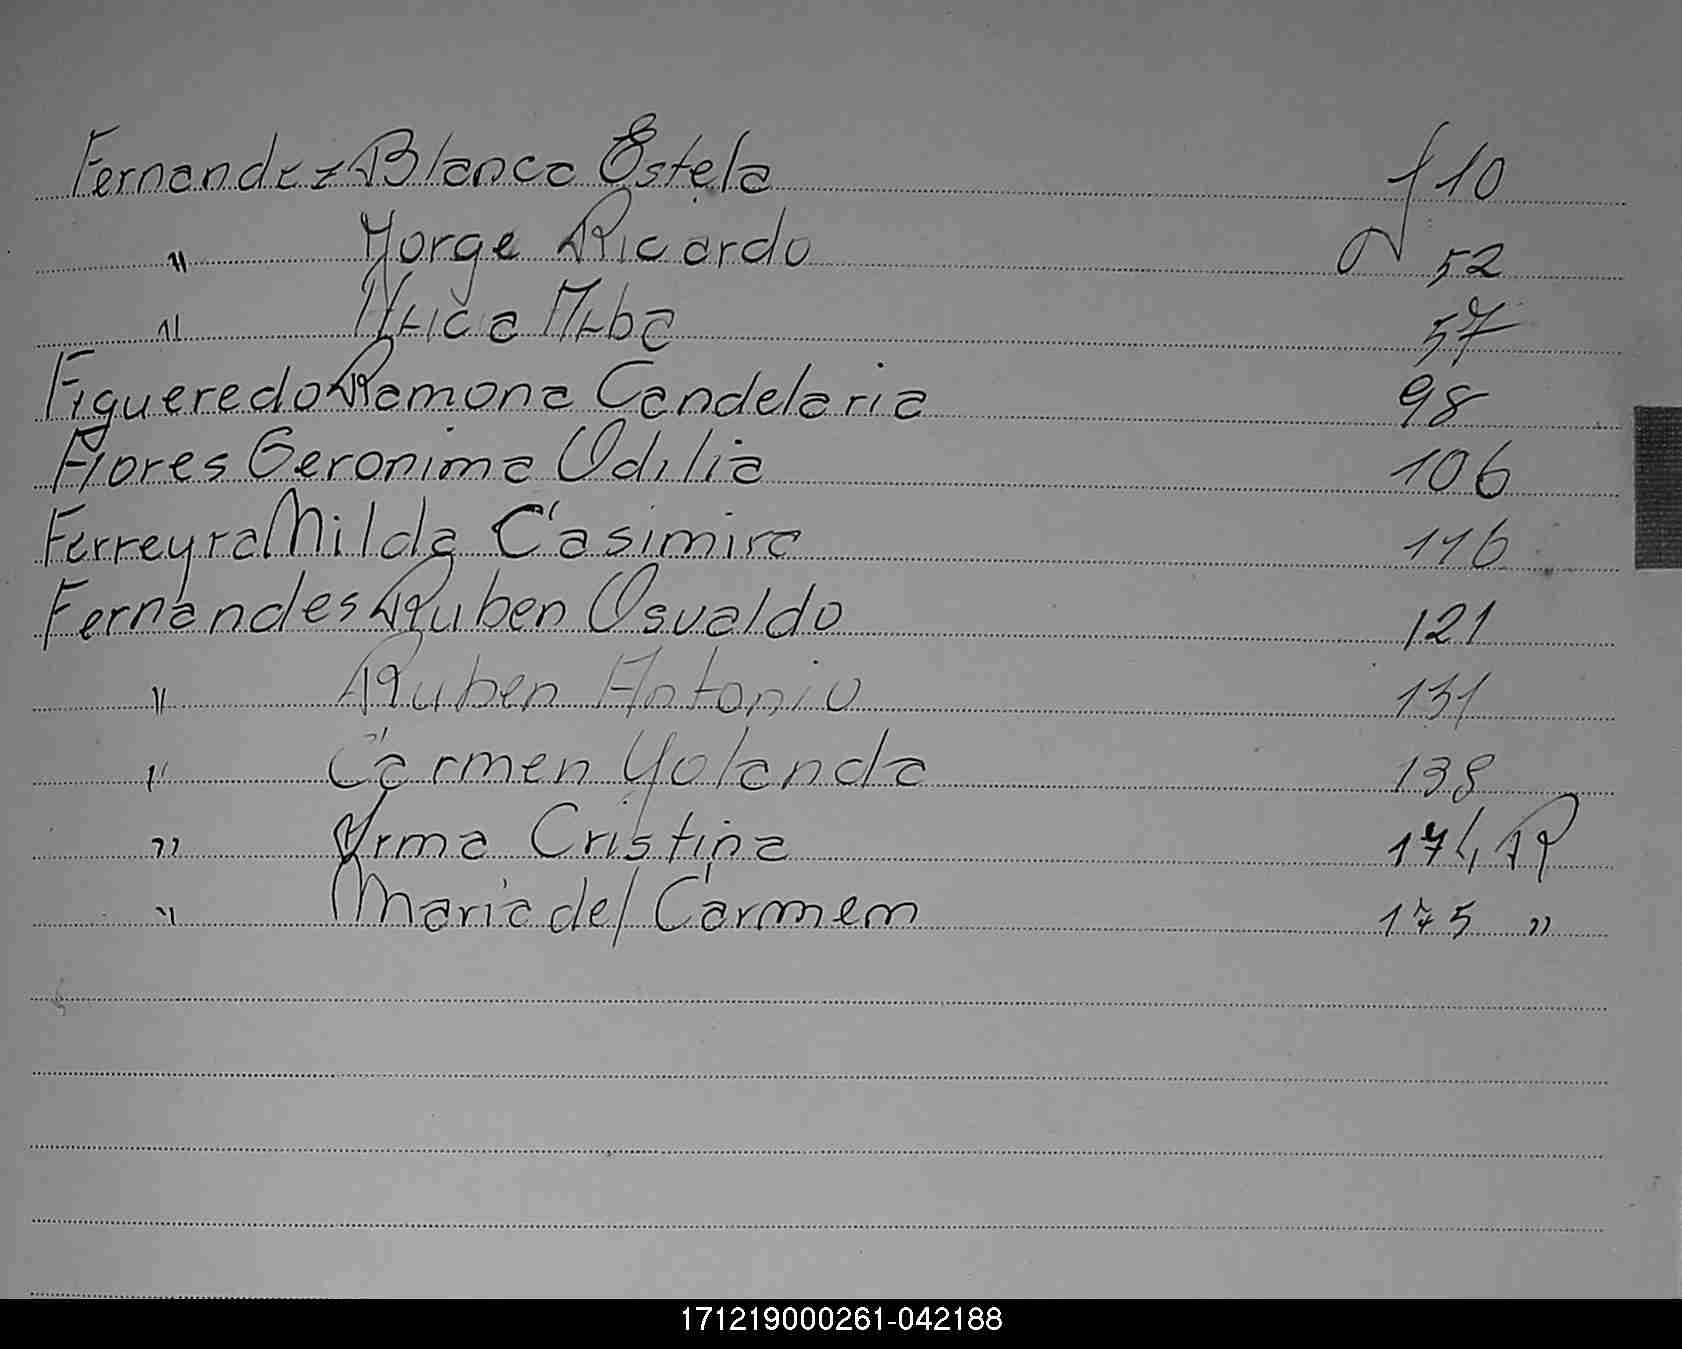 Fernandez Blanca Estela f 10
" Yorge Ricardo 52
" Alicia Alba 57
Figueredo Ramona Candelaria 98
Flores Geronima Odilia 106
Ferreyra Milda Casimira 116
Fernandes Ruben Osvaldo 121
" Ruben Antonio 131
" Carmen Yolanda 138
" Yrma Cristina 174 R
" Maria del Carmem 175 "
171219000261-042188